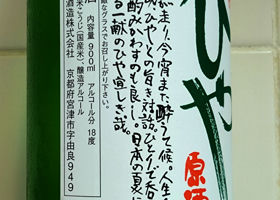 ひや
原酒
が走り、今宵また酔うて候。人生
ひやとの旨き対話。ひとりで呑
酌みかわすのも良し。日本の夏に
る一献のひや宜しき哉。
敵なグラスでお召し上がり下さい。
内容量 900ml アルコール分 18度
米こうじ(国産米)、醸造アルコール
酒造株式会社 京都府宮津市字由良949